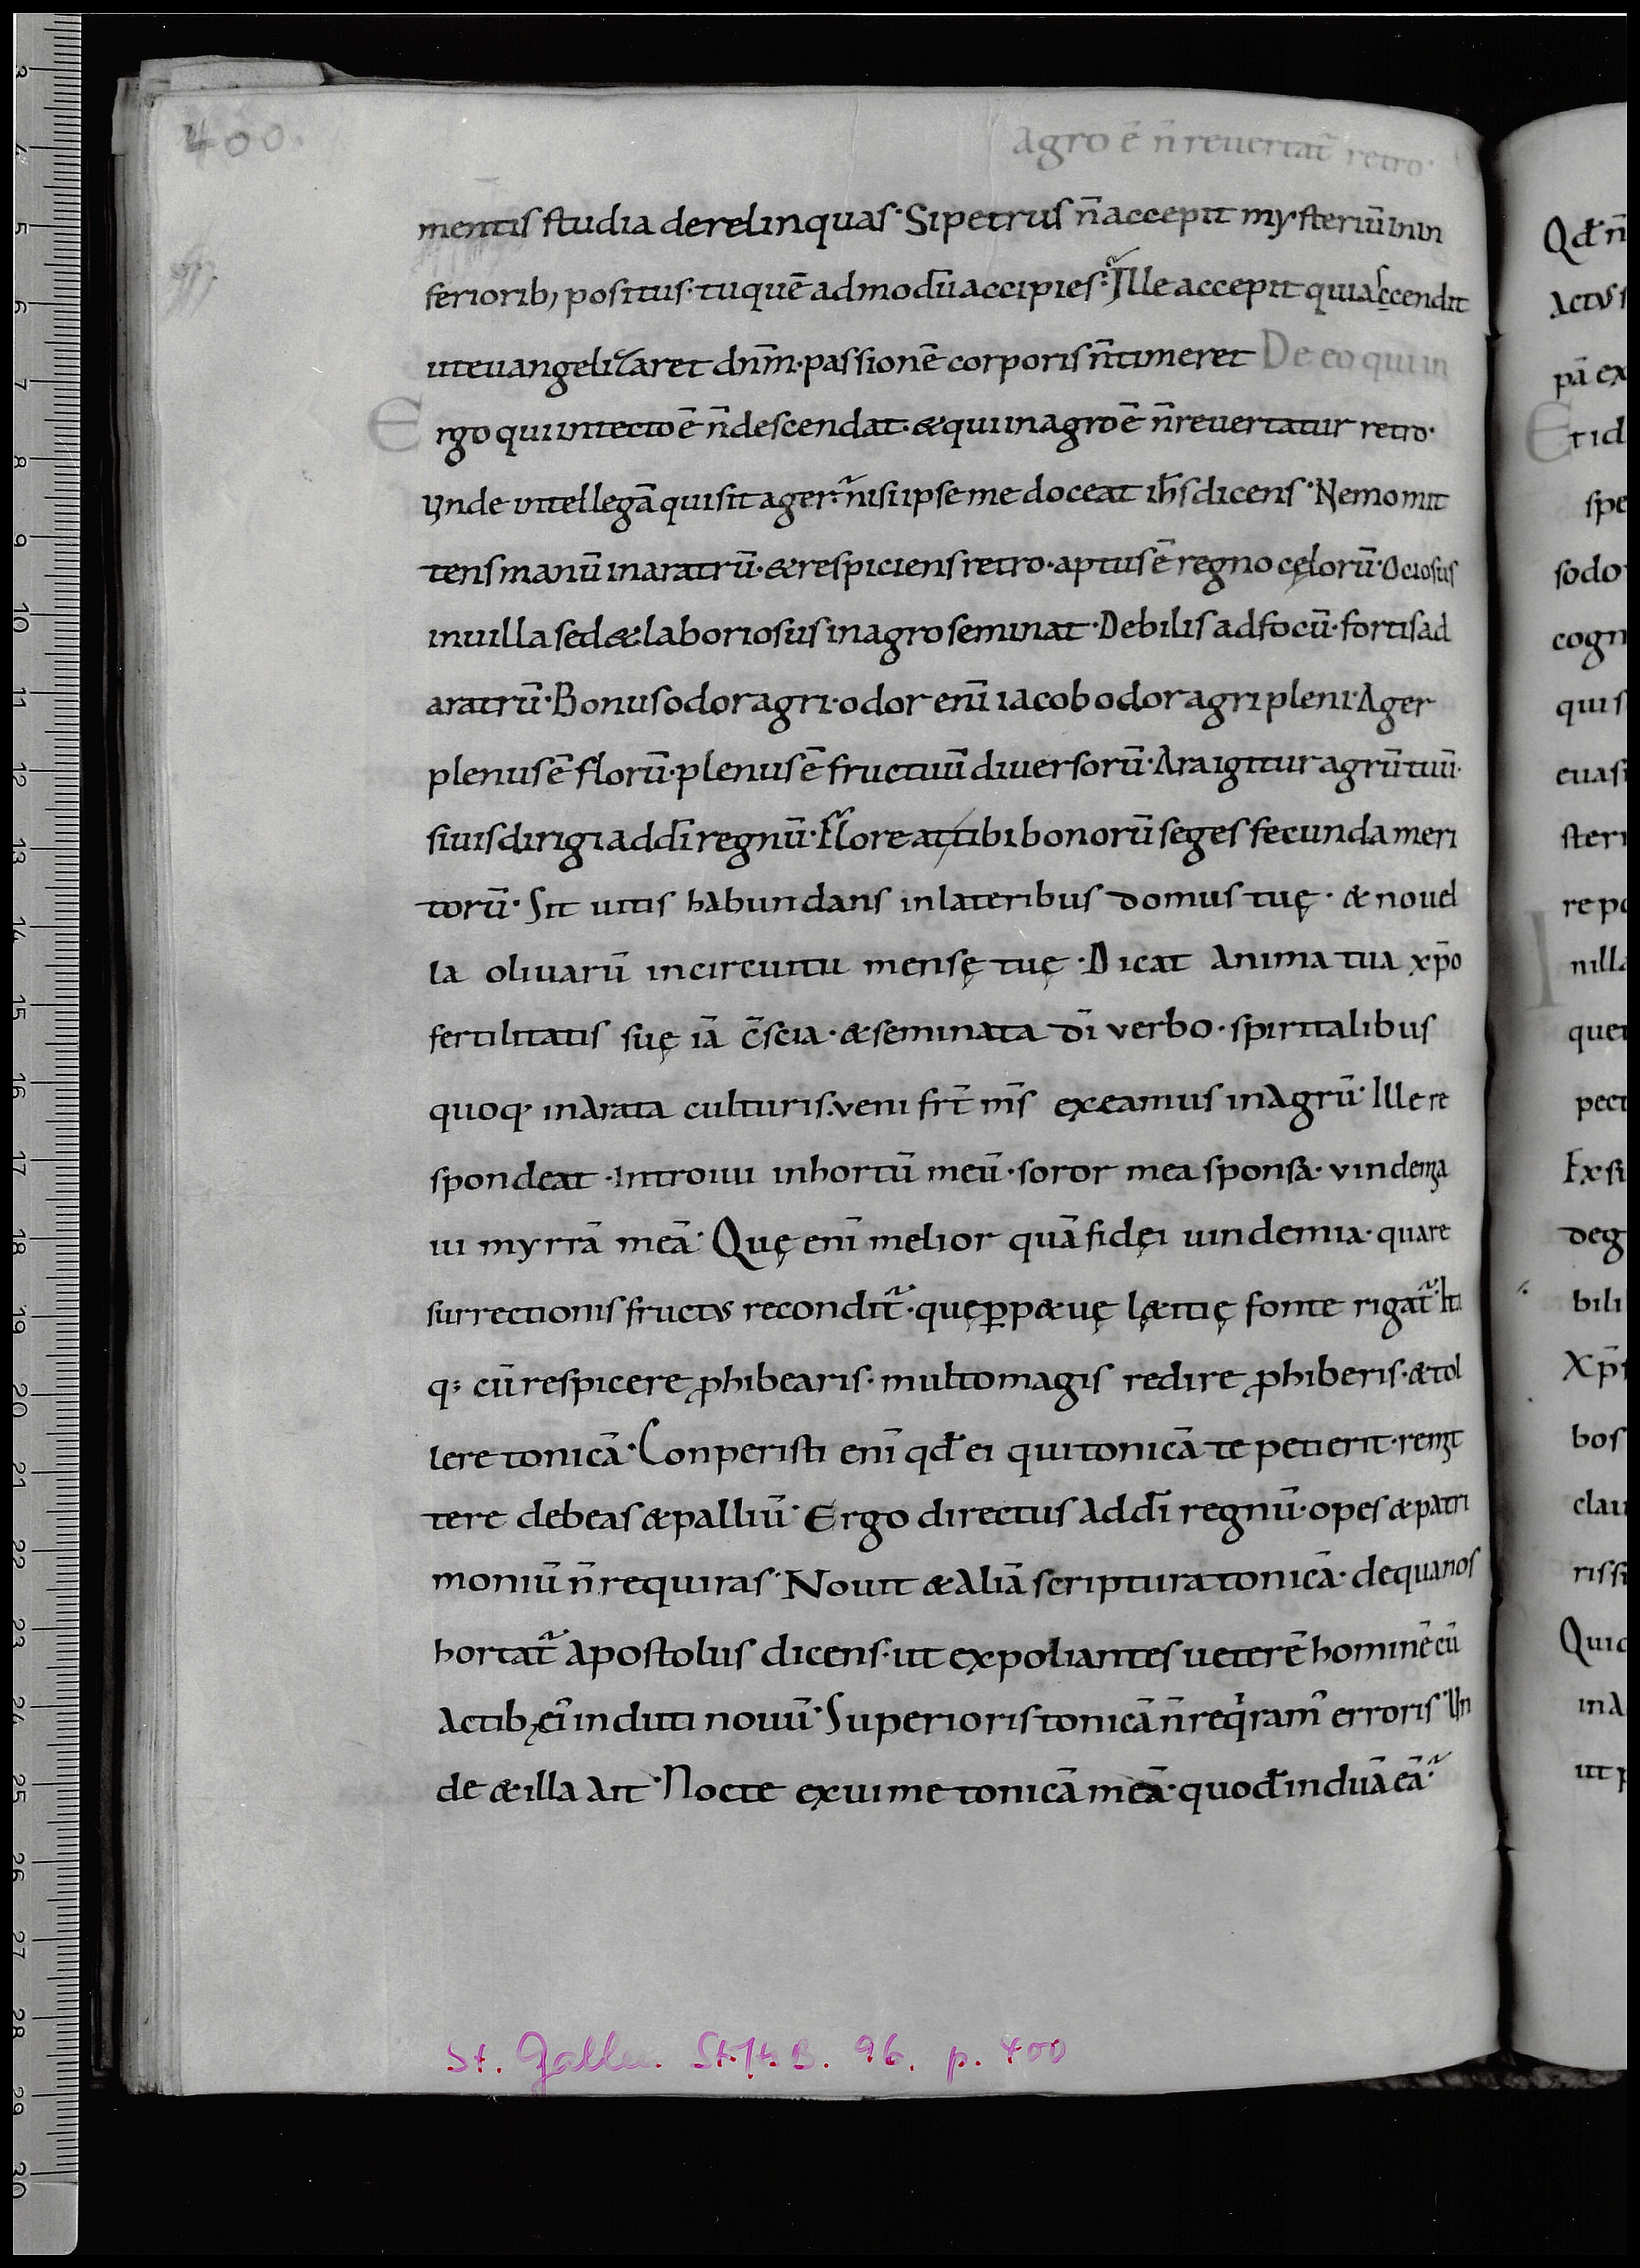 400.
agro ē n̄ reuertat̃ retro·
mentis studia derelinquas· Si petrus n̄ accepit mysteriū in in
feriorib; positus· tu quē admodū accipies· Ille accepit quia ascendit
ut euangelizaret dn̄m· passionē corporis n̄ timeret De eo qui in
Ergo qui in tecto ē n̄ descendat· & qui in agro ē n̄ reuertatur retro·
Unde intellegā qui sit ager· nisi ipse me doceat ih̄s dicens· Nemo mit
tens manū in aratrū· & respiciens retro· aptus ē regno cęlorū· Ociosus
in uilla sed & laboriosus in agro seminat· Debilis ad focū· fortis ad
aratrū· Bonus odor agri· odor enī iacob odor agri pleni· Ager
plenus ē florū· plenus ē fructuū diuersorū· Ara igitur agrū tuū·
si uis dirigi ad dī regnū· Floreat tibi bonorū seges fecunda meri
torū· Sit uitis habundans in lateribus domus tuę· & nouel
la oliuarū in circuitu mensę tuę· Dicat anima tua xp̄o
fertilitatis suę iā c̄scia· & seminata dī verbo· spiritalibus
quoq· inarata culturis. veni frt̄ m̄s exeamus in agrū· Ille re
spondeat· Introiui in hortū meū· soror mea sponsa· vindemia
ui myrrā meā· Quę enī melior quā fidęi uindemia· qua re
surrectionis fructus recondit̃· quę ꝑpæuę lętitię fonte rigat̃· Ita
q; cū respicere ꝓhibearis· multo magis redire ꝓhiberis· & tol
lere tonicā· Conperisti enī qđ ei qui tonicā te petierit· remit
tere debeas & palliū· Ergo directus ad dī regnū· opes & patri
moniū n̄ requiras· Nouit & aliā scriptura tonicā· de qua nos
hortat̃ apostolus dicens· ut expoliantes ueterē hominē cū
actib; eī induti nouū· Superioris tonicā n̄ reqͥram̄ erroris· Un
de & illa ait· Nocte exui me tonicā meā· quođ induā eā·
St. Gallen. Stiftsb. 96. p. 400